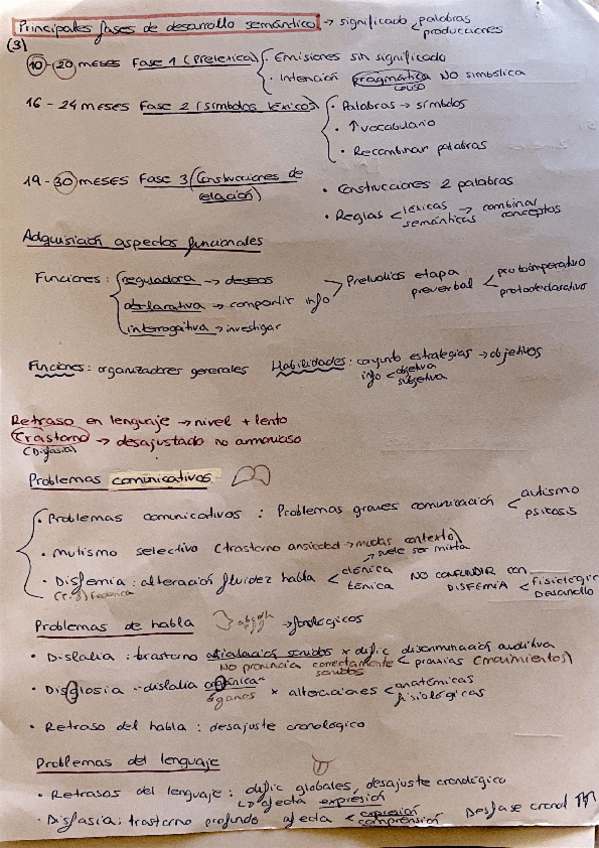 Principales fases de desarrollo semántico → significado < palabras
producciones
(3)
10-20 meses Fase 1 (Prelexica) · Emisiones sin significado
· Intención pragmática no simbolica
16 - 24 meses Fase 2 (símbolos léxicos) · Palabras → símbolos
· ↑ vocabulario
· Recombinar palabras
19 - 30 meses Fase 3 (Construcciones de relación) · Construcciones 2 palabras
· Reglas < léxicas → combinar
semánticas conceptos
Adquisición aspectos funcionales
Funciones: reguladora → deseos
declarativa → compartir info > Preludios etapa preverbal < protoimperativo
protodeclarativo
interrogativa → investigar
Funciones: organizadores generales Habilidades: conjunto estrategias → objetivos
info < objetiva
subjetiva
Retraso en lenguaje → nivel + lento
Trastorno → desajustado no armonioso
(Disfasia)
Problemas comunicativos
· Problemas comunicativos : Problemas graves comunicación < autismo
psicosis
· Mutismo selectivo (trastorno ansiedad → mudas contexto)
→ suele ser mixta
· Disfemia : alteración fluidez habla < clónica
tónica NO CONFUNDIR CON
DISFEMIA < fisiologic
Desarrollo
Federica
Problemas de habla → fonologicos
· Dislalia : trastorno articulación sonidos x dific discriminación auditiva
No pronuncia correctamente sonidos < praxias (movimientos)
· Disglosia "dislalia orgánica" x alteraciones < anatómicas
fisiológicas
órganos
· Retraso del habla : desajuste cronologico
Problemas del lenguaje
· Retrasos del lenguaje : dific globales, desajuste cronológico
↳ afecta expresión
· Disfasia : trastorno profundo afecta < expresión
comprensión Desfase cronol